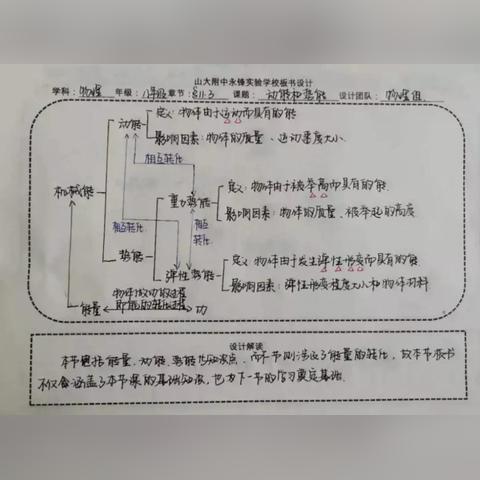 山大附中永锋实验学校板书设计
学科：物理 年级：八年级 章节：§11.3 课题：动能和势能 设计团队：物理组
定义：物体由于运动而具有的能
动能
影响因素：物体的质量、运动速度大小
相互转化
机械能
定义：物体由于被举高而具有的能
重力势能
影响因素：物体的质量、被举起的高度
相互转化
相互转化
势能
定义：物体由于发生弹性形变而具有的能
弹性势能
影响因素：弹性形变程度大小和物体材料
物体做功的过程
即能的转化过程
能量 功
设计解读
本节包括能量、动能、势能 知识点，而下节则涉及了能量的转化，故本节板书
不仅会涵盖了本节课的基础知识，也为下一节的学习奠定基础。